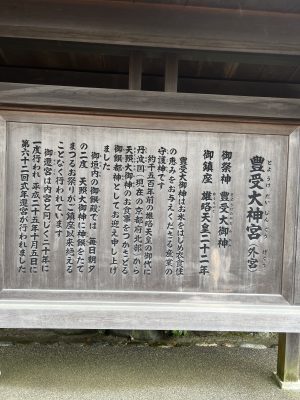 とようけだいじんぐう げくう
豊受大神宮 外宮
御祭神 豊受大御神
御鎮座 雄略天皇二十二年
豊受大御神はお米をはじめ衣食住
の恵みをお与えくださる産業の
守護神です
約千五百年前の雄略天皇の御代に
丹波国(現在の京都府北部)から
天照大御神のお食事をつかさどる
御饌都神としてお迎え申し上げ
ました
御垣内の御饌殿では 毎日朝夕
の二度 天照大御神に神饌をたて
まつるお祭りがご鎮座以来絶える
ことなく行われています
御遷宮は内宮と同じく二十年に
一度行われ 平成二十五年十月五日に
第六十二回式年遷宮が行われました